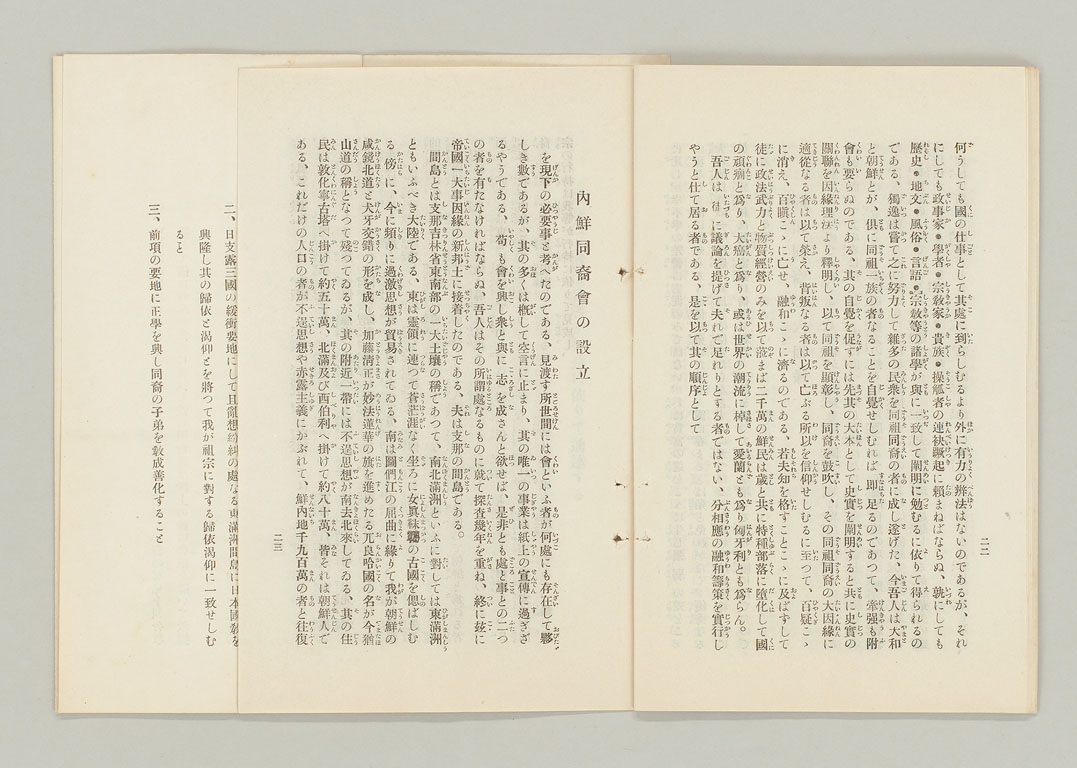 何うしても國の仕事として其處に到らしむるより外に有力の辨法はないのであるが、それ
にしても政事家・學者・宗敎家・貴族・操觚者の連袂蹶起に賴まねばならぬ、孰にしても
歷史・地文・風俗・言語・宗敎等の諸學が與に一致して闡明に勉むるに依りて得られるの
である、獨逸は嘗て之に努力して雜多の民衆を同祖同裔の者に成し遂げた、今吾人は大和
と朝鮮とが、俱に同祖一族の者なることを自覺せしむれば、卽足るのであつて、牽强も附
會も要らぬのである、其の自覺を促すには先其の大本として史實を闡明すると共に史實の
關聯を因緣理法より釋明し、以て同祖を顯彰し、同裔を鼓吹し、その同祖同裔の大因緣に
適從なる者は以て榮え、背叛なる者は以て亡ぶる所以を信仰せしむるに至つて、百疑こゝ
に消え、百瞋こゝに亡せ、融和こゝに濟るのである、若夫知を格すことこゝに及ばずして
徒に政法武力と物質經營のみを以て蒞まば二千萬の鮮民は歲と共に特種部落に墮化して國
の頑痼と爲り、大癌と爲り、或は世界の潮流に棹して愛蘭とも爲り匈牙利とも爲らん。
吾人は に議論を提げて夫れで足れりとする者ではない、分相應の融和籌策を實行し
やうと仕て居る者である、是を以て其の順序として
二二
內鮮同裔會の設立
を現下の必要事と考へたのである、見渡す所世間には會といふ者が何處にも存在して夥
しき數であるが、其の多くは槪して空言に止まり、其の唯一の事業は紙上の宣傳に過ぎざ
るやうである、苟も會を興し衆と與に志を成さんと欲せば、是非とも處と事との二つ
の者を有たなければならぬ、吾人はその所謂處なるものに就て探査幾年を重ね、終に玆に
帝國一大事因緣の新邦土に接着したのである、夫は支那の間島である。
間島とは支那吉林省東南部の一大土壤の稱であつて、南北滿洲といふに對しては東滿洲
ともいふべき大陸である、東は露領に連つて蒼茫涯なく坐ろに女眞靺鞨の古國を偲ばしむ
る傍に、今は頻りに過激思想が貿易されてゐる、南は圖們江の屈曲に緣りて我が朝鮮の
咸鏡北道と犬牙交錯の形を成し、加藤淸正が妙法蓮華の旗を進めたる兀良哈國の名が今猶
山道の稱となつて殘つてゐるが、其の附近一帶には不逞思想が南去北來してゐる、其の住
民は敦化寧古塔へ掛けて約五十萬、北滿及び西伯利へ掛けて約八十萬、皆それは朝鮮人で
ある、これだけの人口の者が不逞思想や赤露主義にかぶれて、鮮內地千九百萬の者と往復
二三
二、日支露三國の緩衝要地にして且亂想紛糾の處なる東滿洲間島に日本國敎を
興隆し其の歸依と渴仰とを將つて我が祖宗に對する歸依渴仰に一致せしむ
ること
三、前項の要地に正學を興し同裔の子弟を敎成善化すること